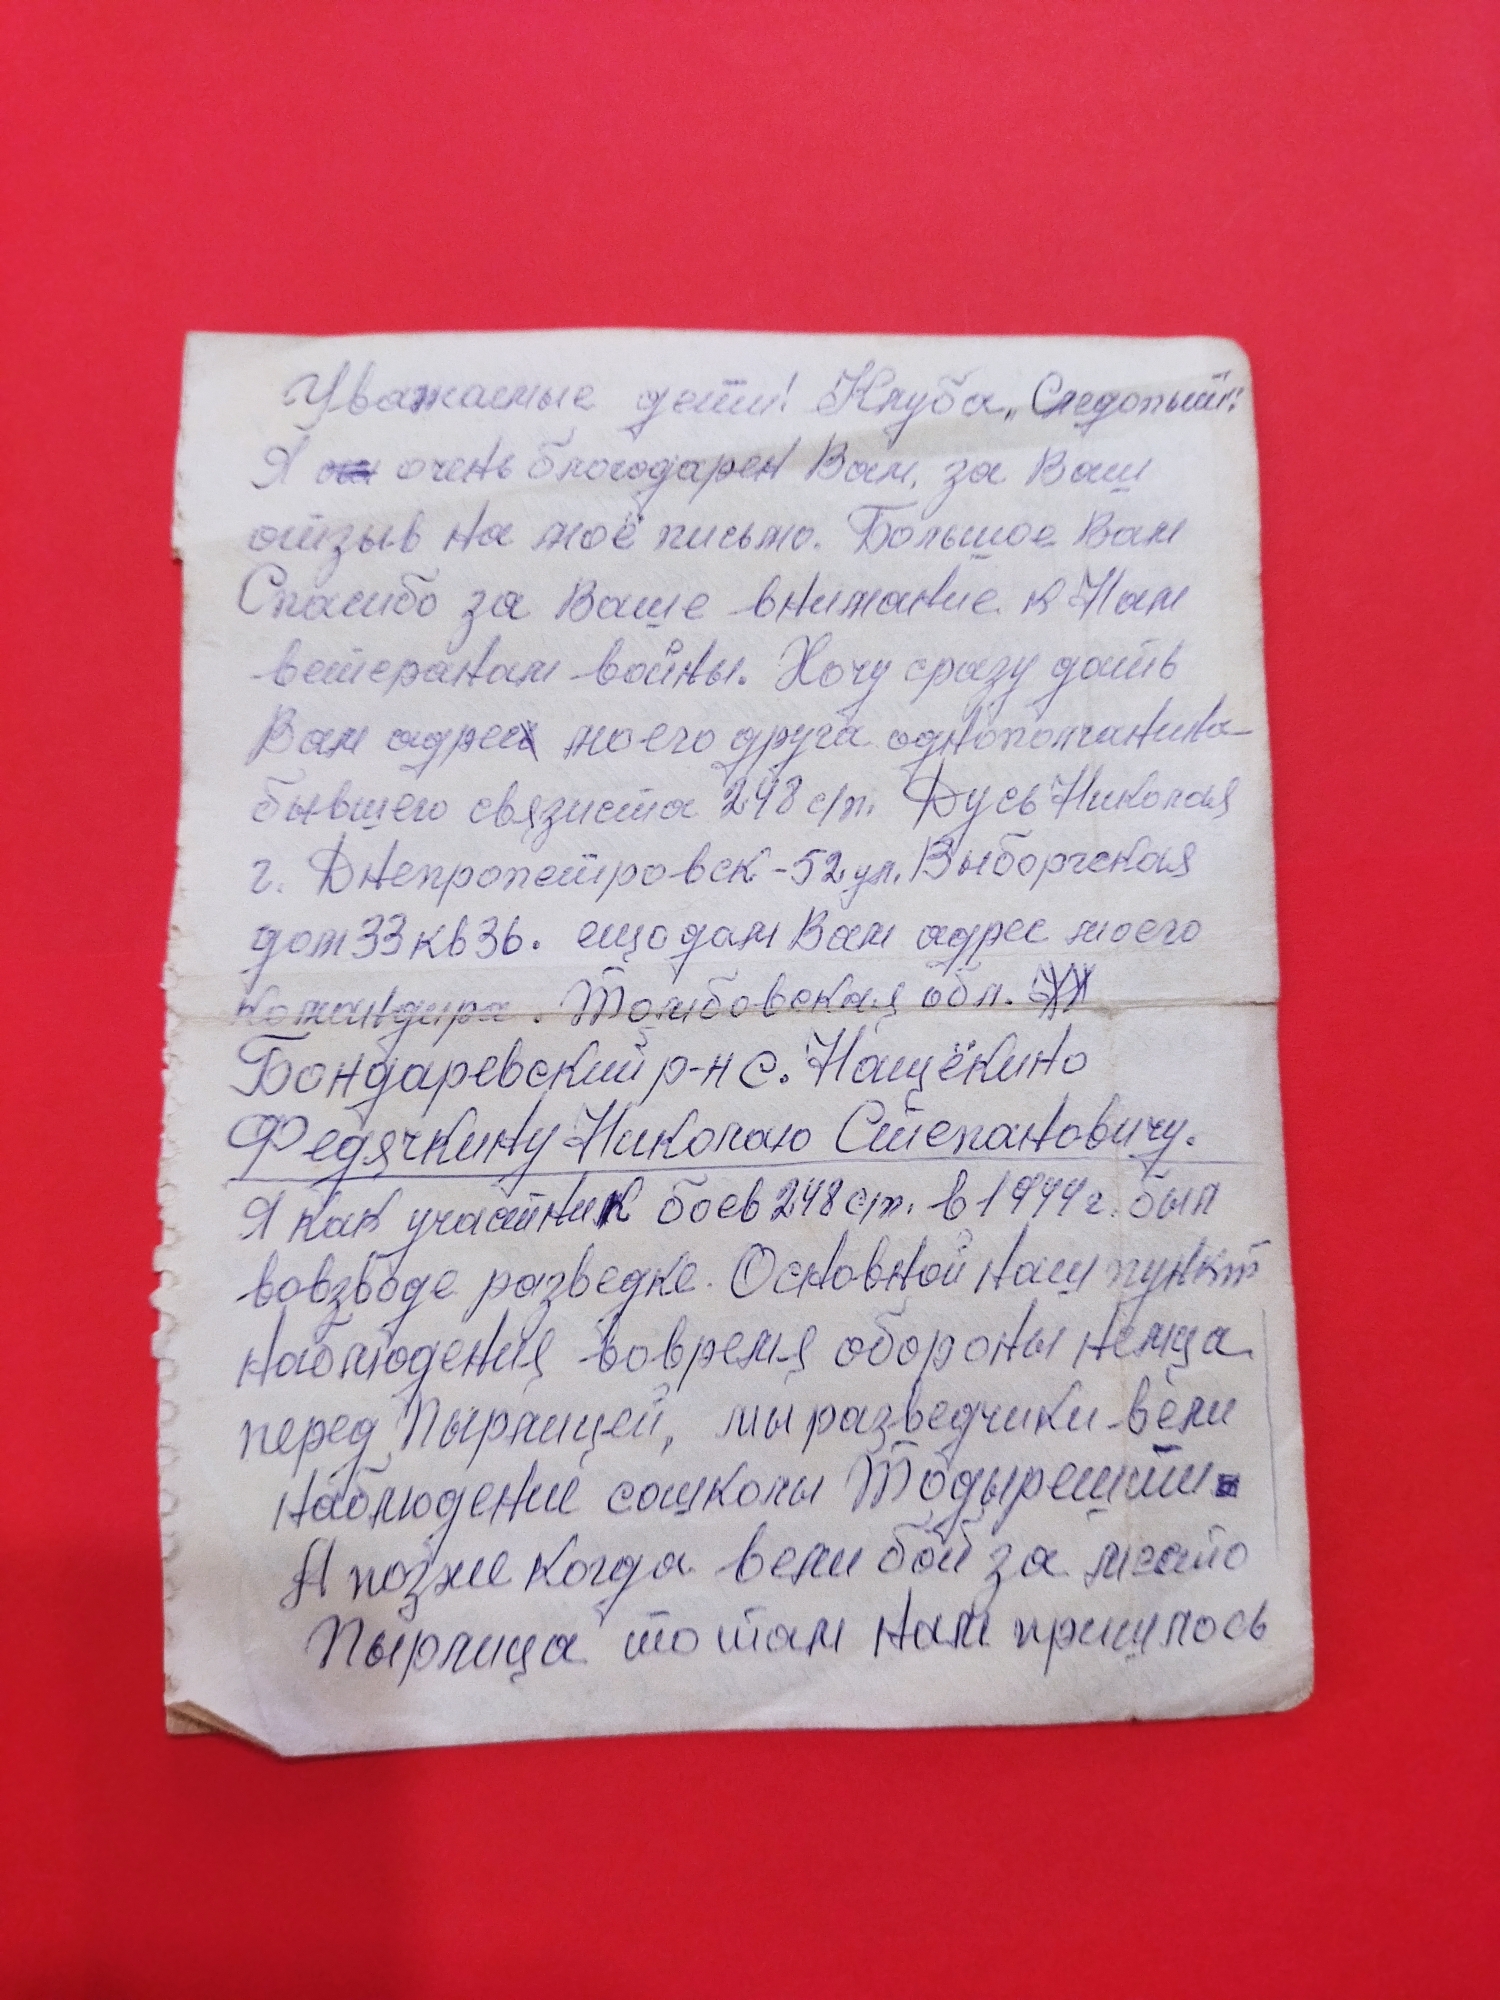 Уважаемые дети! Клуба „Следопыт"!
Я очень благодарен Вам, за Ваш
отзыв на моё письмо. Большое Вам
Спасибо за Ваше внимание к Нам
ветеранам войны. Хочу сразу дать
Вам адрес моего друга однополчанина
бывшего связиста 248 с/п. Дусь Николая
г. Днепропетровск-52 ул. Выборгская
дом 33 кв 36. ещо дам Вам адрес моего
командира. Томбовская обл.
Бондаревский р-н с. Нащёкино
Федячкину Николаю Степановичу.
Я как участник боев 248 с/п. в 1944 г. был
вовзводе разведке. Основной наш пункт
наблюдения вовремя обороны немца
перед Пырлицей, мы разведчики вели
наблюдение сошколы Тодырешти
А позже когда вели бой за место
Пырлица то там нам пришлось